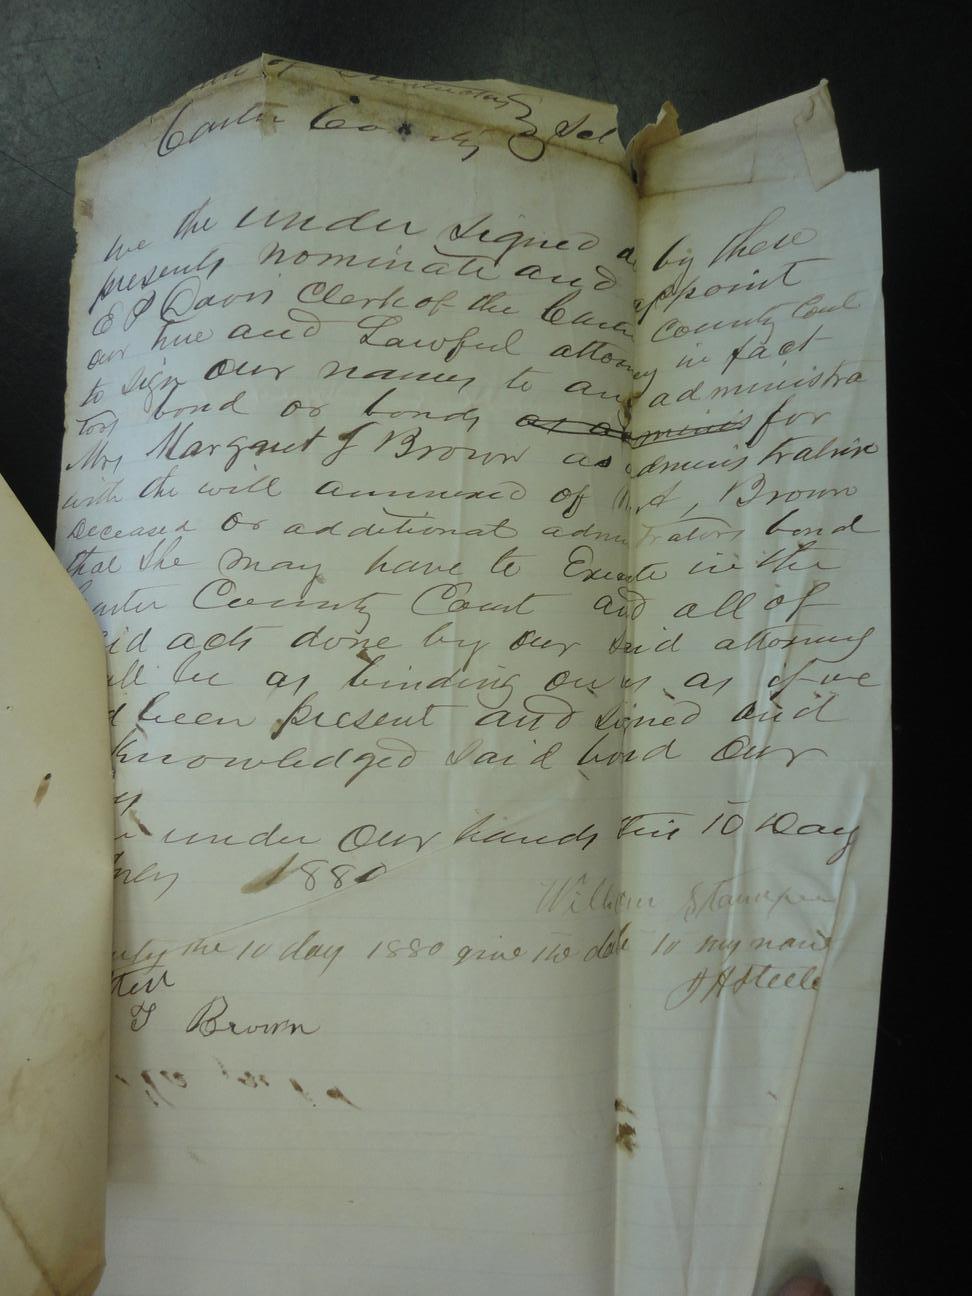 of Kentucky
Carter County } Sct
We the under signed do by these
presents nominate and appoint
E P Davis Clerk of the Carter County Court
our true and Lawful attorney in fact
to sign our names to any administra
tors bond or bonds as adminis for
Mrs Margret J Brown as administratrix
with the will annexed of A, Brown
Deceased or additional adminitrators bond
that she may have to Execute in the
arter County Court and all of
id acts done by our said attorney
all be as binding on us as if we
d been present and signed and
knowledged said bond our
under our hands this 10 Day
1880
William Stamper
the 10 day 1880 give the date to my name
J H Steele
ttest
J Brown